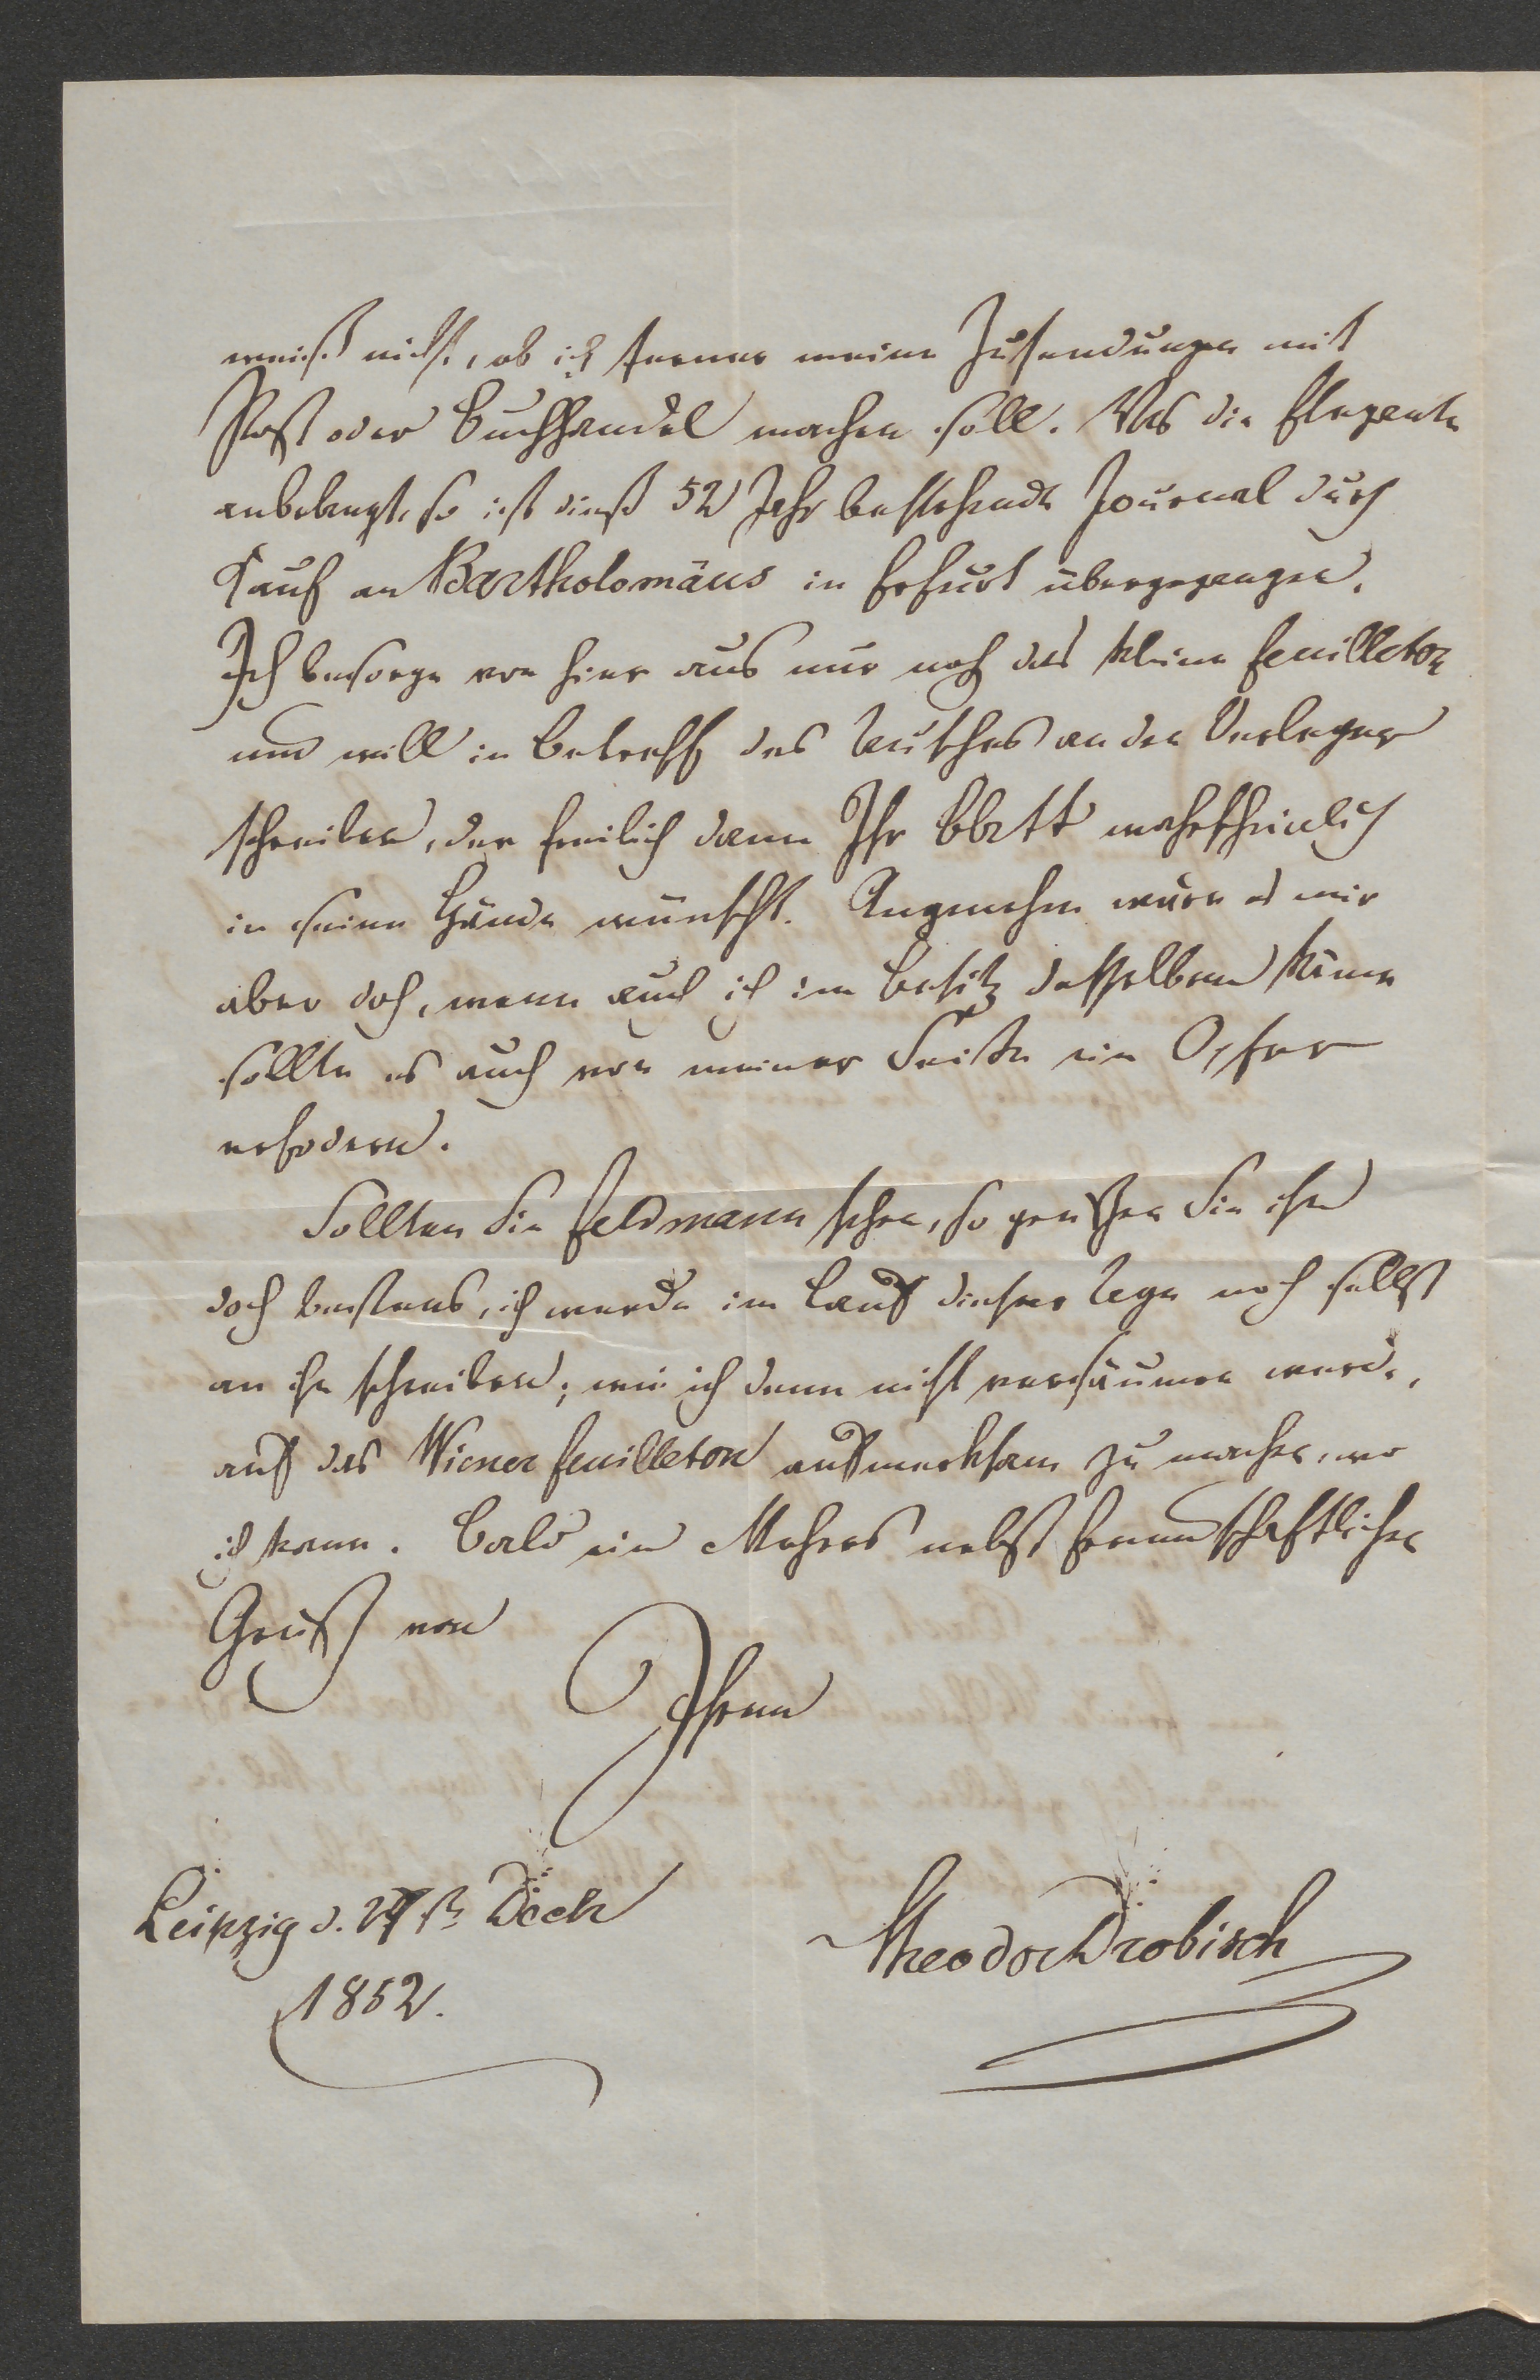 weiß nicht, ob ich ferner meine Zusendungen mit
Post oder Buchhandel machen soll. Was die Elegante
anbelangt, so ist dieß 52 Jahr bestehende Journal durch
Kauf an Bartholomäus in Erfurt übergegangen.
Ich besorge von hier aus nur noch das kleine Feuilleton
und will in Betreff des Tausches an den Verleger
schreiben, der freilich dann Ihr Blatt wahrscheinlich
in seine Hände wünscht. Angenehm wäre es mir
aber doch, wenn auch ich im Besitz desselben käme
sollte es auch von meiner Seite ein Opfer
erfodern.
Sollten Sie Feldmann sehen, so grüßen Sie ihn
doch bestens, ich werde im Lauf dieser Tage noch selbst
an ihn schreiben; wie ich denn nicht versäumen werde,
auf das Wiener Feuilleton aufmerksam zu machen, wo
ich kann. Bald ein Mehres nebst freundschaftlichen
Gruß von
Ihrem
Leipzig d. Decbr
Theodor Drobisch
1852.